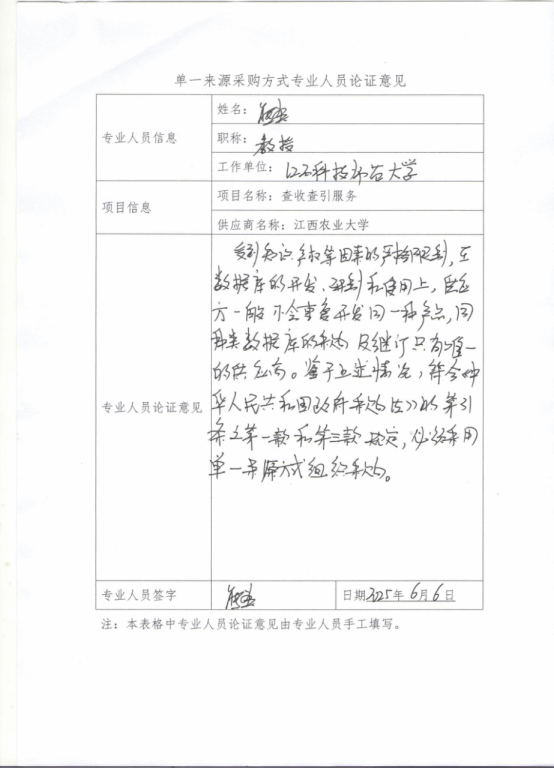 单一来源采购方式专业人员论证意见
专业人员信息
姓名：
职称：教授
工作单位：江西科技师范大学
项目信息
项目名称：查收查引服务
供应商名称：江西农业大学
专业人员论证意见
受到知识产权等因素的严格限制，在
数据库的开发、研制和使用上，
方一般不会重复开发同一种产品，同
种类数据库的采购及继订只有唯一
的供应商。鉴于上述情况，符合《中
华人民共和国政府采购法》的第31
条之第一款和第三款规定，必须采用
单一来源方式组织采购。
专业人员签字
日期2025年6月6日
注：本表格中专业人员论证意见由专业人员手工填写。